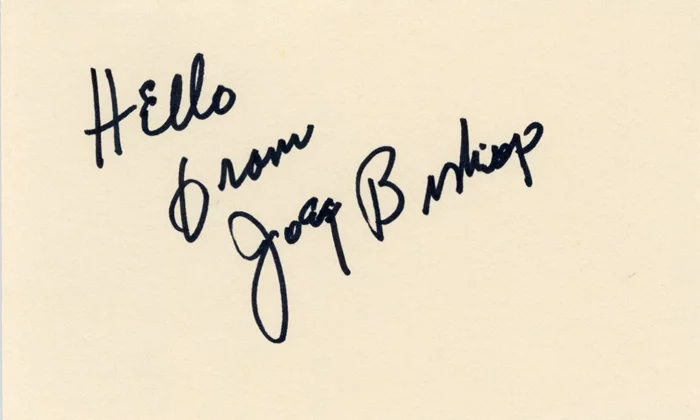 Hello
from
Joey Bishop